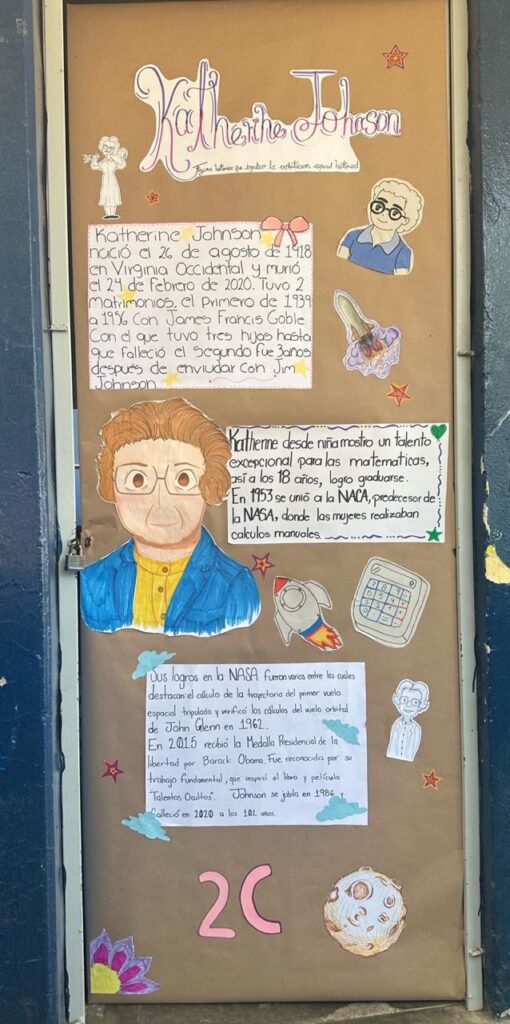 Katherine Johnson
Figura historica que impulso la exploracion espacial historica
Katherine Johnson
nació el 26 de agosto de 1918
en Virginia Occidental y murió
el 24 de febrero de 2020. Tuvo 2
Matrimonios, el primero de 1939
a 1956 Con James Francis Goble
Con el que tuvo tres hijas hasta
que falleció el Segundo fue 3 años
después de enviudar con Jim
Johnson
Katherine desde niña mostro un talento
excepcional para las matematicas,
asi a los 18 años, logro graduarse.
En 1953 se unió a la NACA, predecesor de
la NASA, donde las mujeres realizaban
calculos manuales.
Sus logros en la NASA fueron varios entre los cuales
destacan: el cálculo de la trayectoria del primer vuelo
espacial tripulado y verificó los cálculos del vuelo orbital
de John Glenn en 1962.
En 2015 recibió la Medalla Presidencial de la
libertad por Barack Obama. Fue reconocida por su
trabajo fundamental, que inspiró el libro y película
"Talentos Ocultos". Johnson se jubila en 1986 y
falleció en 2020 a los 101 años.
2C